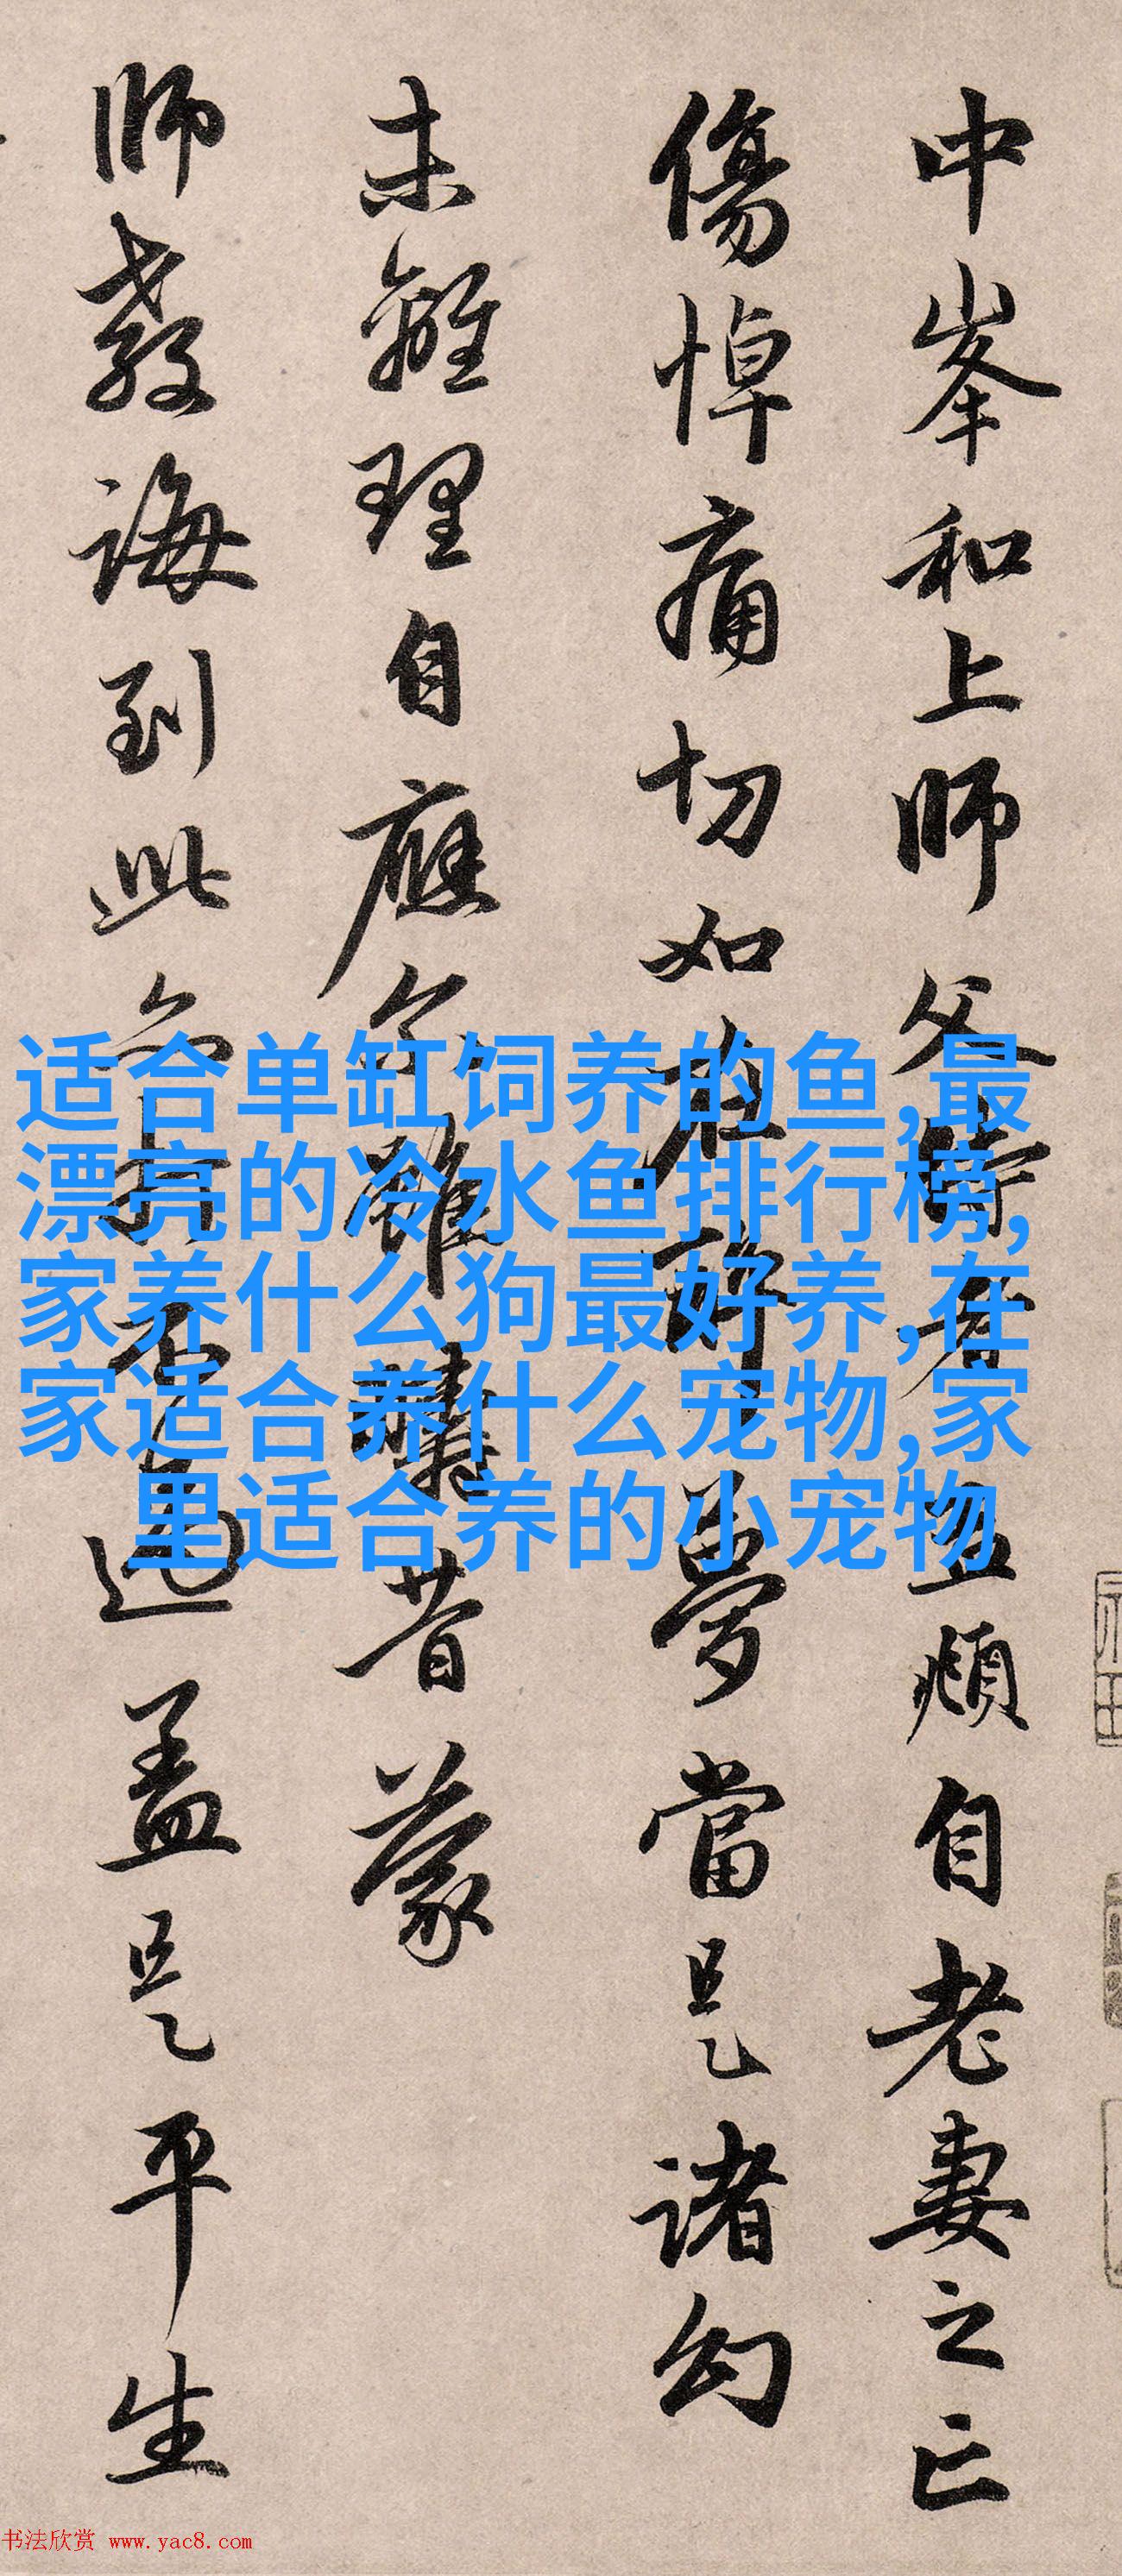 中峯和上師父侍者孟頫自老妻之亡
傷悼痛切如在醉夢當是諸幻
未離理自應尔雖疇昔蒙
師教誨到此亦打不過蓋是平生
适合单缸饲养的鱼,最
漂亮的冷水鱼排行榜,
家养什么狗最好养,在
家适合养什么宠物,家
里适合养的小宠物
书法欣赏 www.yac8.com